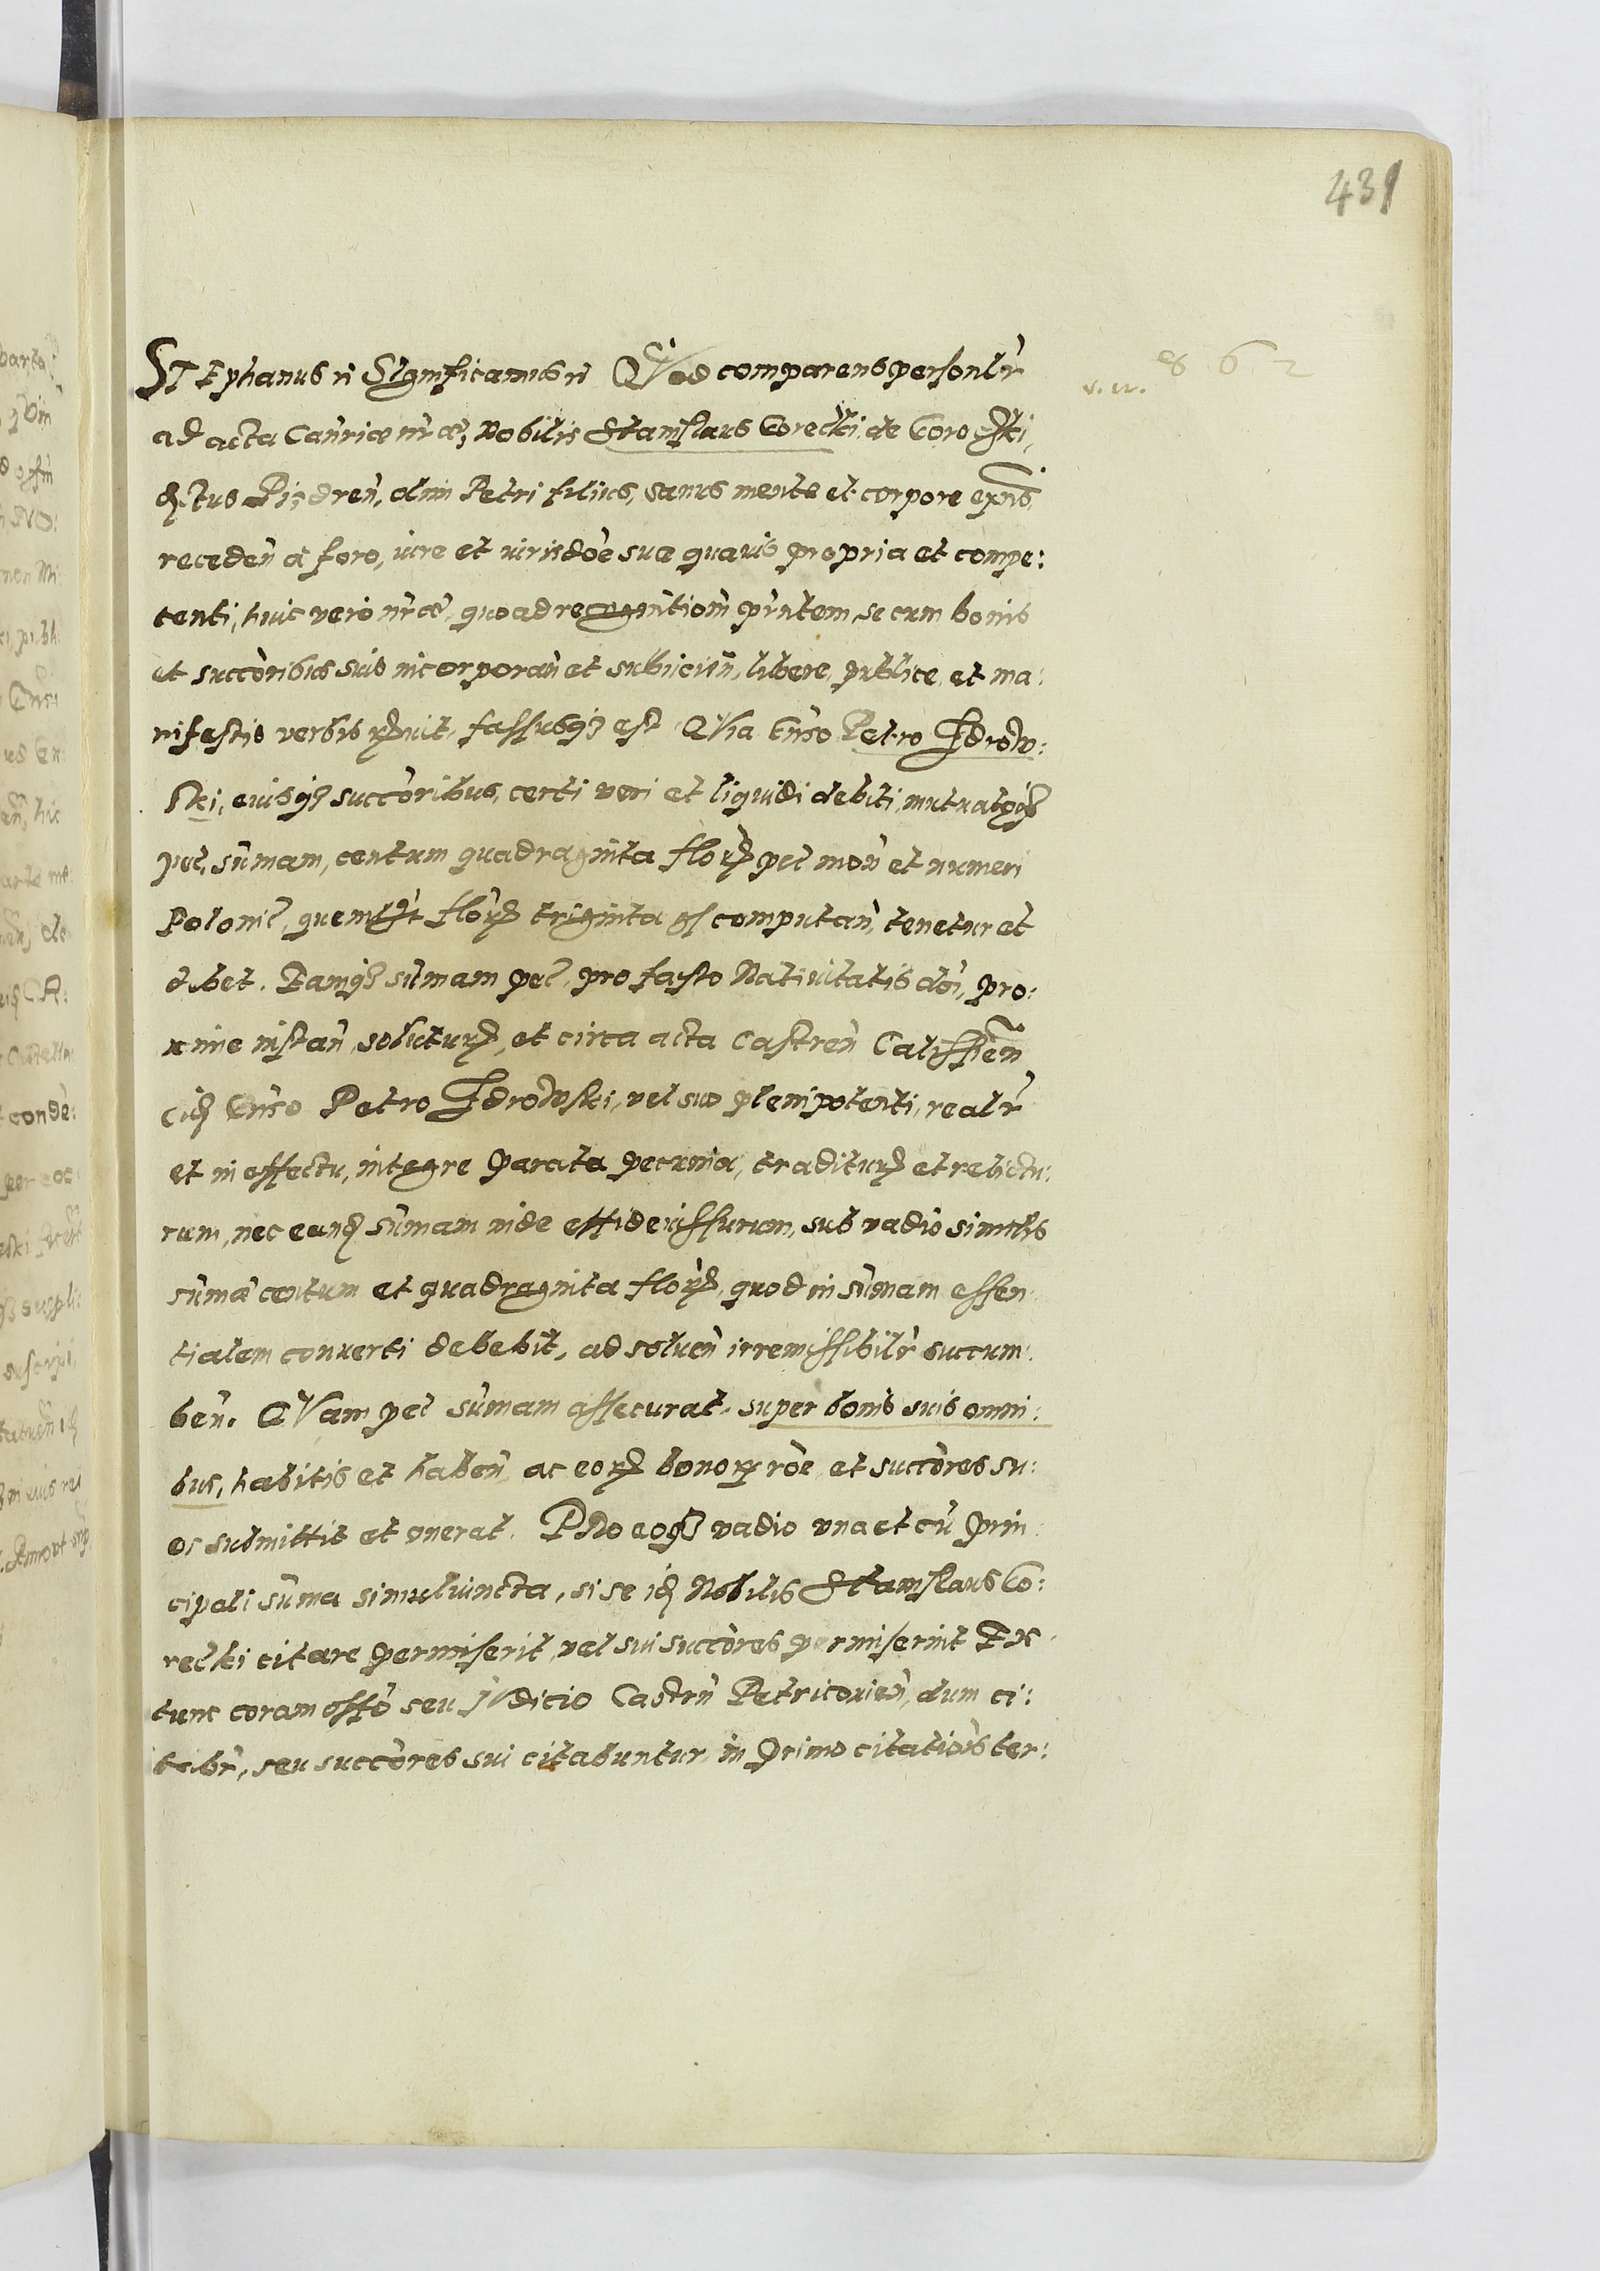 431
862
STEphanus ñ SIgnificamus ñ QVod comparens personlr̀
ad acta Cañriæ nr̃æ, Nobilis Stanislaus Gorecki, de Goro
Pisdreñ, olim Petri filius, sanus mente et corpore exñs,
recedeñ a foro, iure et iurisdoẽ sua quauis propria et compe:
tenti, huic vero nr̃æ, quoad recognitioñ prñtem, se cum bonis
et succòribus suis incorporañ et subiicieñ, libere, publice, et ma:
nifestis verbis rẽnuit, fassusq3 est QVia Gnso Petro Zdrow:
ski, eiusq3 succòribus, certi veri et liquidi debiti, mutuatæq3
pec, sum̃am, centum quadraginta flor̃ pec moñ et numeri
Polonic, quemlib3t flor̃ triginta gs computañ, tenetur et
debet. Eamq3 sum̃am pec, pro festo Natiuitatis doì, pro:
xime instañ, soluturũ, et circa acta Castreñ Calissieñ
eid Gnso Petro Zdrowski, vel suo plenipotenti, realr̀
et in effectu, integre parata pecunia, traditurũ et relictu:
rum, nec eand sum̃am inde effideiussurum, sub vadio similis
sum̃æ centum et quadraginta flor̃, quod in sum̃am essen
tialem conuerti debebit, ad solueñ irremissibilr̀ succum:
beñ. QVam pec sum̃am assecurat, super bonis suis omni:
bus, habitis et habeñ ac eor̃ bonor̃ roẽ, et succòres su:
os submittit et onerat. PRo eoq3 vadio vna et cũ prin
cipali sum̃a simul iuncta, si se id Nobilis Stanislaus Go:
recki citare permiserit, vel sui succòres permiserint EX
tunc coram offò seu JVdicio Castrñ Petricouieñ, dum ci:
tabr̀, seu succòres sui citabuntur, in primo citatioìs ter: